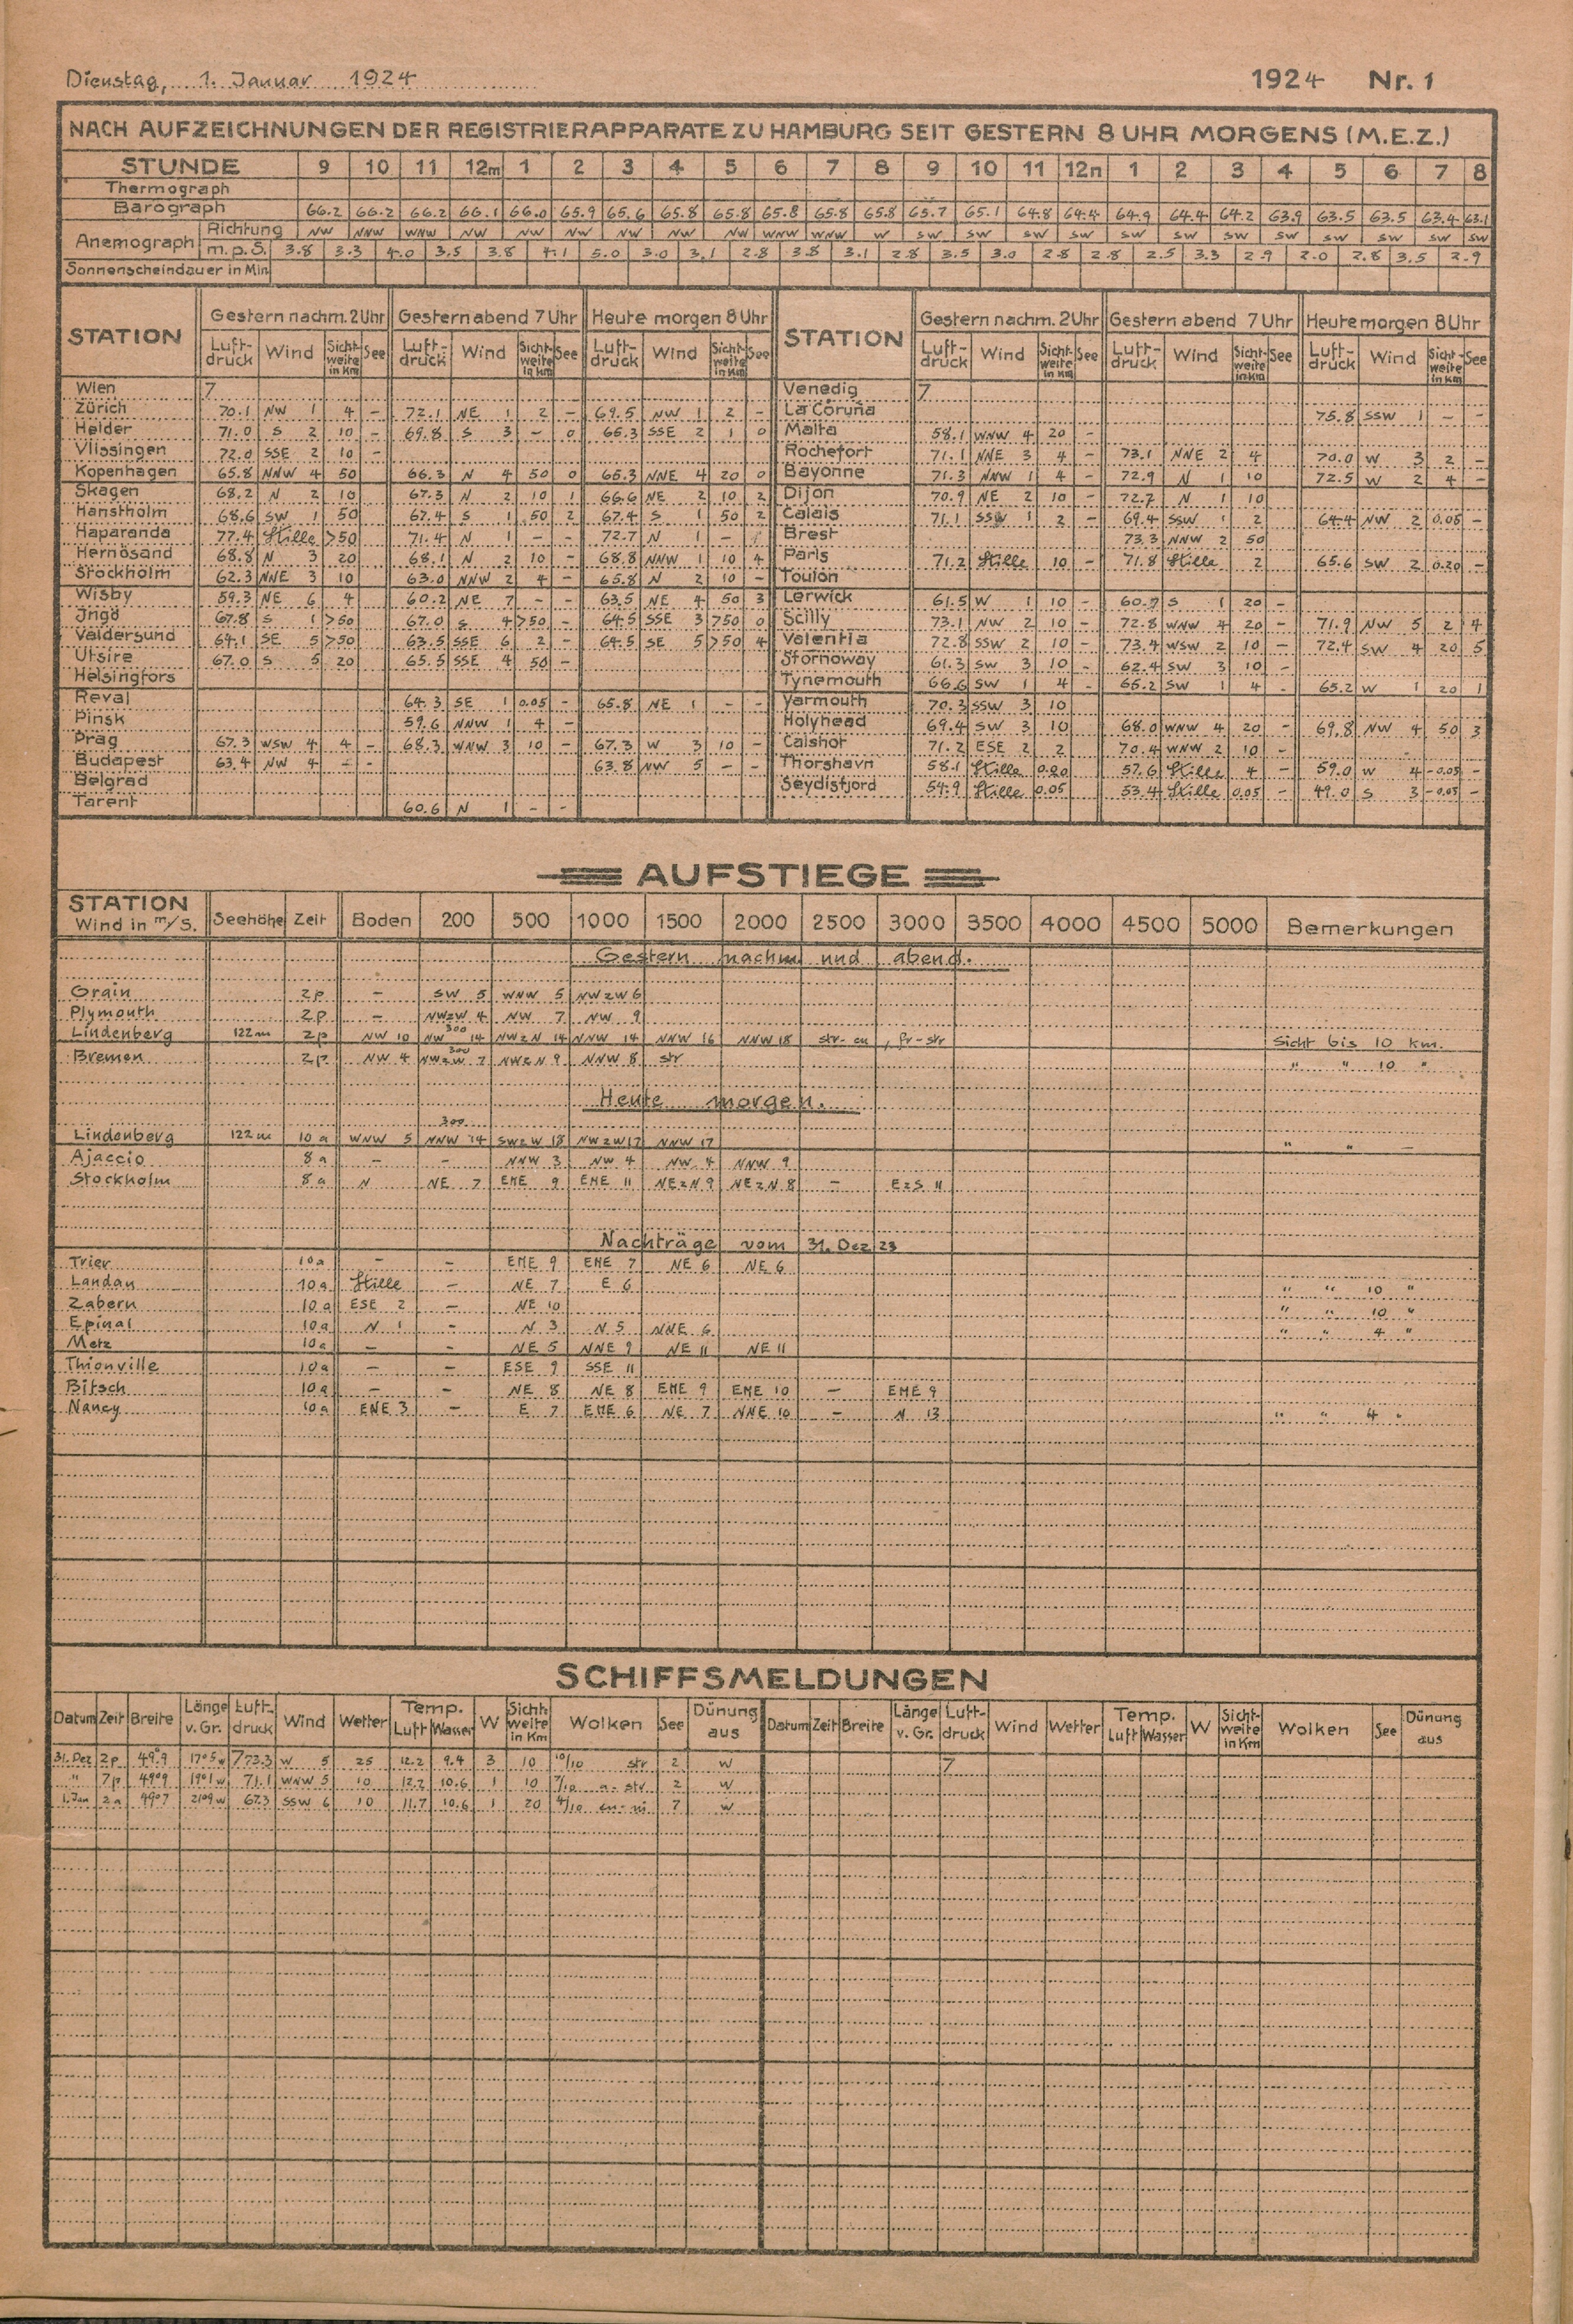 Dienstag, 1. Januar 1924 1924 Nr. 1
NACH AUFZEICHNUNGEN DER REGISTRIERAPPARATE ZU HAMBURG SEIT GESTERN 8 UHR MORGENS (M.E.Z.)
STUNDE 9 10 11 12m 1 2 3 4 5 6 7 8 9 10 11 12n 1 2 3 4 5 6 7 8
Thermograph
Barograph 66.2 66.2 66.2 66.1 66.0 65.9 65.6 65.8 65.8 65.8 65.8 65.8 65.7 65.1 64.8 64.4 64.9 64.4 64.2 63.9 63.5 63.5 63.4 63.1
Anemograph Richtung NW NNW WNW NW NW NW NW NW NW WNW WNW W SW SW SW SW SW SW SW SW SW SW SW SW
m.p.S. 3.8 3.3 4.0 3.5 3.8 4.1 5.0 3.0 3.1 2.8 3.8 3.1 2.8 3.5 3.0 2.8 2.8 2.5 3.3 2.9 2.0 2.8 3.5 2.9
Sonnenscheindauer in Min
STATION Gestern nachm. 2 Uhr Gestern abend 7 Uhr Heute morgen 8 Uhr STATION Gestern nachm. 2 Uhr Gestern abend 7 Uhr Heute morgen 8 Uhr
Luft-druck Wind Sicht-weite in Km See Luft-druck Wind Sicht-weite in Km See Luft-druck Wind Sicht-weite in Km See Luft-druck Wind Sicht-weite in Km See Luft-druck Wind Sicht-weite in Km See Luft-druck Wind Sicht-weite in Km See
Wien 7 Venedig 7
Zürich 70.1 NW 1 4 – 72.1 NE 1 2 – 69.5 NW 1 2 – La Coruña 75.8 SSW 1 – –
Helder 71.0 S 2 10 – 69.8 S 3 – 0 65.3 SSE 2 1 0 Malta 58.1 WNW 4 20 –
Vlissingen 72.0 SSE 2 10 – Rochefort 71.1 NNE 3 4 – 73.1 NNE 2 4 70.0 W 3 2 –
Kopenhagen 65.8 NNW 4 50 66.3 N 4 50 0 65.3 NNE 4 20 0 Bayonne 71.3 NNW 1 4 – 72.9 N 1 10 72.5 W 2 4 –
Skagen 68.2 N 2 10 67.3 N 2 10 1 66.6 NE 2 10 2 Dijon 70.9 NE 2 10 – 72.7 N 1 10
Hanstholm 68.6 SW 1 50 67.4 S 1 50 2 67.4 S 1 50 2 Calais 71.1 SSW 1 2 – 69.4 SSW 1 2 64.4 NW 2 0.05 –
Haparanda 77.4 Stille >50 71.4 N 1 – – 72.7 N 1 – Brest 73.3 NNW 2 50
Hernösand 68.8 N 3 20 68.1 N 2 10 – 68.8 NNW 1 10 4 Paris 71.2 Stille 10 – 71.8 Stille 2 65.6 SW 2 0.20 –
Stockholm 62.3 NNE 3 10 63.0 NNW 2 4 – 65.8 N 2 10 – Toulon
Wisby 59.3 NE 6 4 60.2 NE 7 – – 63.5 NE 4 50 3 Lerwick 61.5 W 1 10 – 60.7 S 1 20 –
Ingö 67.8 S 1 >50 67.0 S 4 >50 – 64.5 SSE 3 >50 0 Scilly 73.1 NW 2 10 – 72.8 WNW 4 20 – 71.9 NW 5 2 4
Valdersund 64.1 SE 5 >50 63.5 SSE 6 2 – 64.5 SE 5 >50 4 Valentia 72.8 SSW 2 10 – 73.4 WSW 2 10 – 72.4 SW 4 20 5
Utsire 67.0 S 5 20 65.5 SSE 4 50 – Stornoway 61.3 SW 3 10 – 62.4 SW 3 10 –
Helsingfors Tynemouth 66.6 SW 1 4 – 65.2 SW 1 4 – 65.2 W 1 20 1
Reval 64.3 SE 1 0.05 – 65.8 NE 1 – – Yarmouth 70.3 SSW 3 10
Pinsk 59.6 NNW 1 4 – Holyhead 69.4 SW 3 10 68.0 WNW 4 20 – 69.8 NW 4 50 3
Prag 67.3 WSW 4 4 – 68.3 WNW 3 10 – 67.3 W 3 10 – Calshot 71.2 ESE 2 2 70.4 WNW 2 10 –
Budapest 63.4 NW 4 – – 63.8 NW 5 – – Thorshavn 58.1 Stille 0.20 57.6 Stille 4 – 59.0 W 4 –0.05 –
Belgrad Seydisfjord 54.9 Stille 0.05 53.4 Stille 0.05 – 49.0 S 3 –0.05 –
Tarent 60.6 N 1 – –
AUFSTIEGE
STATION Wind in m/S. Seehöhe Zeit Boden 200 500 1000 1500 2000 2500 3000 3500 4000 4500 5000 Bemerkungen
Gestern nachm und abend.
Grain 2p – SW 5 WNW 5 NWzW 6
Plymouth 2p – NWzW 4 NW 7 NW 9
Lindenberg 122m 2p NW 10 NW 300 14 NWzN 14 NNW 14 NNW 16 NNW 18 str-cu, fr-str Sicht bis 10 km.
Bremen 2p NW 4 NWzW 300 7 NWzN 9 NNW 8 str " " 10 "
Heute morgen.
Lindenberg 122m 10a WNW 5 300 NNW 14 SWzW 18 NWzW 17 NNW 17 " " –
Ajaccio 8a – – NNW 3 NW 4 NW 4 NNW 9
Stockholm 8a N NE 7 ENE 9 ENE 11 NEzN 9 NEzN 8 – EzS 11
Nachträge vom 31. Dez 23
Trier 10a – – ENE 9 ENE 7 NE 6 NE 6
Landau 10a Stille – NE 7 E 6 " " 10 "
Zabern 10a ESE 2 – NE 10 " " 10 "
Epinal 10a N 1 – N 3 N 5 NNE 6 " " 4 "
Metz 10a – – NE 5 NNE 9 NE 11 NE 11
Thionville 10a – – ESE 9 SSE 11
Bitsch 10a – – NE 8 NE 8 ENE 9 ENE 10 – ENE 9
Nancy 10a ENE 3 – E 7 ENE 6 NE 7 NNE 10 – N 13 " " 4 "
SCHIFFSMELDUNGEN
Datum Zeit Breite Länge v. Gr. Luft-druck Wind Wetter Temp. Luft Wasser W Sicht-weite in Km Wolken See Dünung aus Datum Zeit Breite Länge v. Gr. Luft-druck Wind Wetter Temp. Luft Wasser W Sicht-weite in Km Wolken See Dünung aus
31. Dez 2p 49°9 17°5w 773.3 W 5 25 12.2 9.4 3 10 10/10 str 2 W 7
" 7p 49°9 19°1w 71.1 WNW 5 10 12.2 10.6 1 10 7/10 a-str 2 W
1. Jan 2a 49°7 21°9w 67.3 SSW 6 10 11.7 10.6 1 20 4/10 cu-ni 7 W